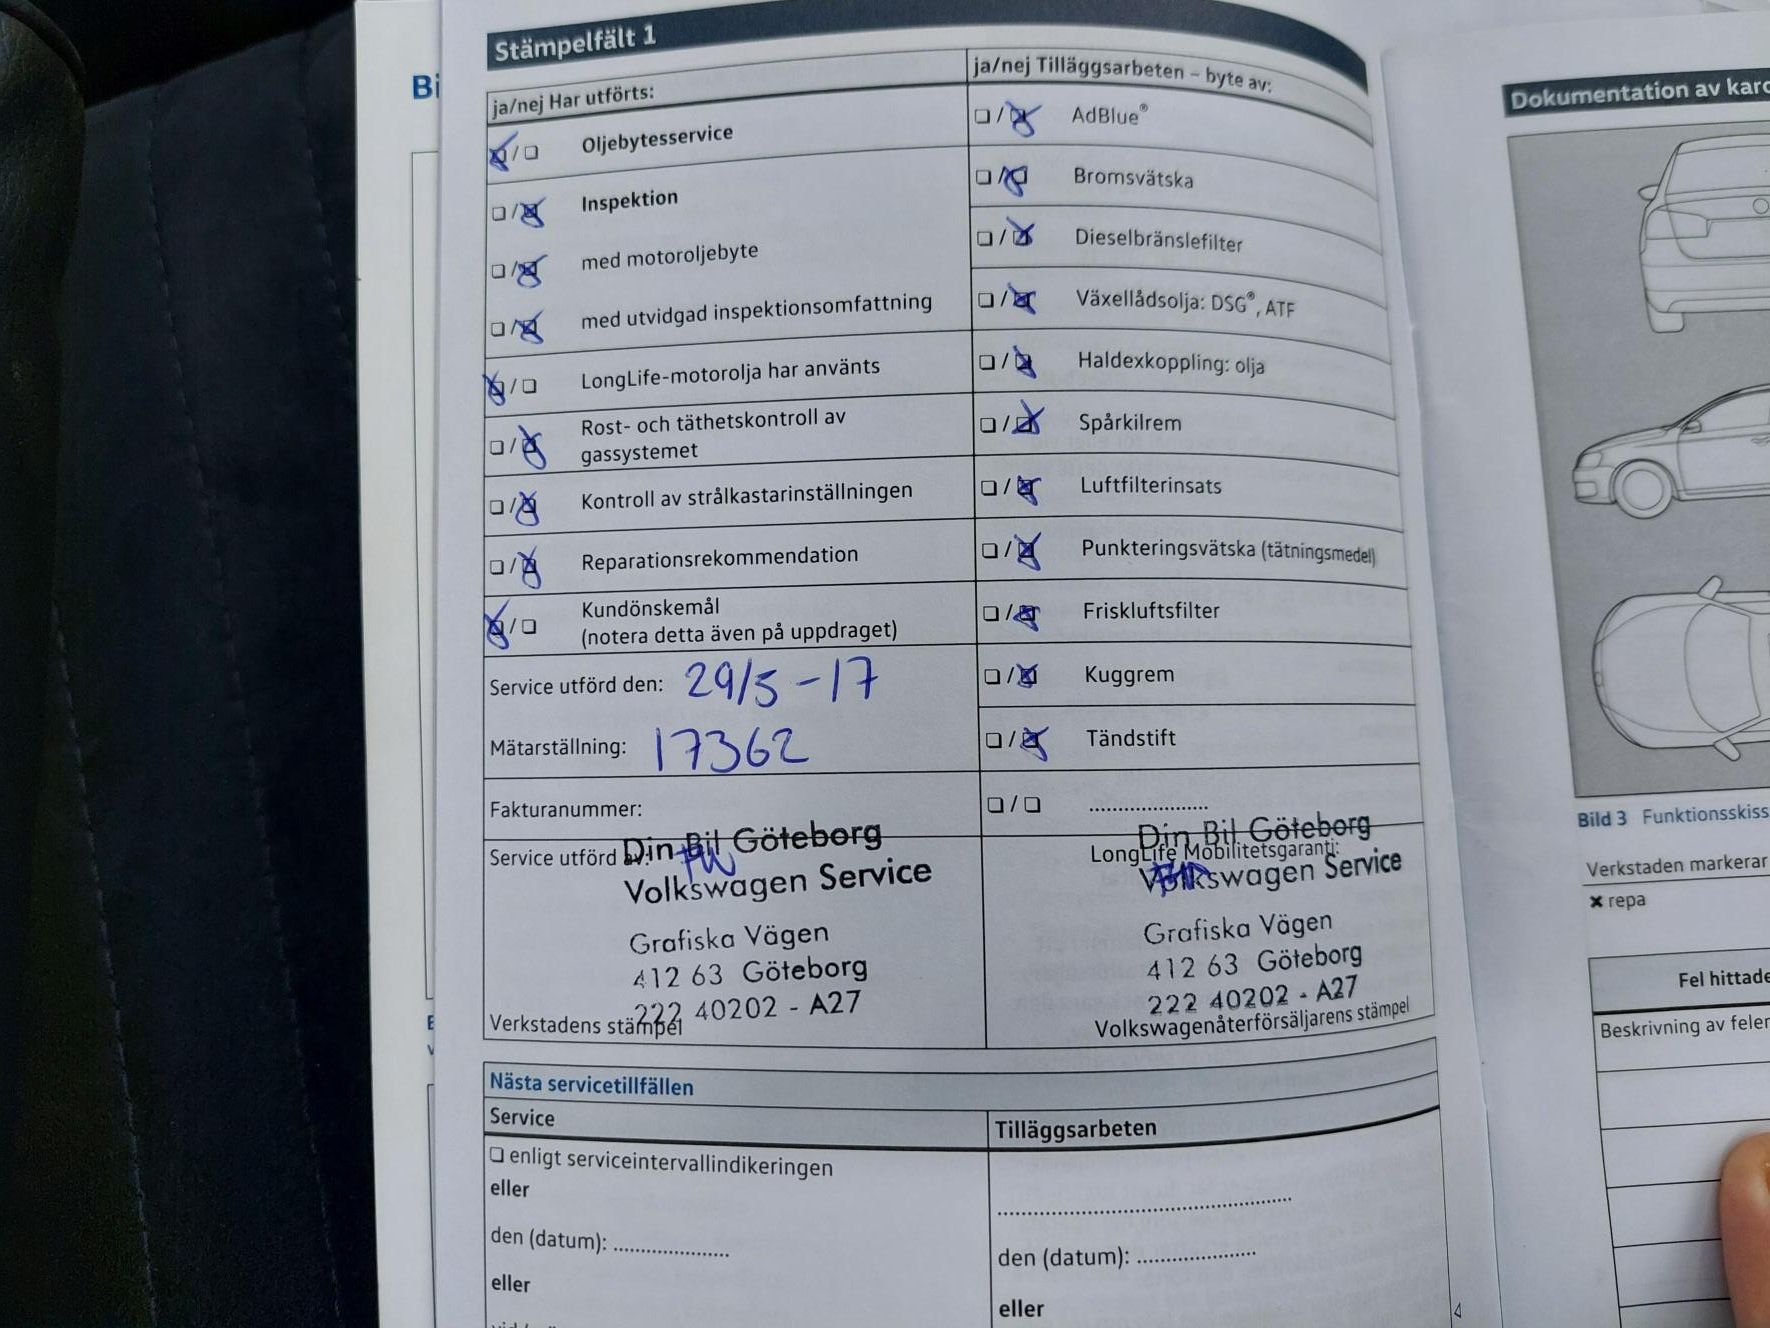 Bi
Stämpelfält 1
ja/nej Har utförts:
Oljebytesservice
Inspektion
med motoroljebyte
med utvidgad inspektionsomfattning
LongLife-motorolja har använts
Rost- och täthetskontroll av
gassystemet
Kontroll av strålkastarinställningen
Reparationsrekommendation
Kundönskemål
(notera detta även på uppdraget)
Service utförd den: 29/5-17
Mätarställning: 17362
Fakturanummer:
Service utförd av:
Din Bil Göteborg
Volkswagen Service
Grafiska Vägen
412 63 Göteborg
222 40202 - A27
Verkstadens stämpel
ja/nej Tilläggsarbeten – byte av:
AdBlue®
Bromsvätska
Dieselbränslefilter
Växellådsolja: DSG®, ATF
Haldexkoppling: olja
Spårkilrem
Luftfilterinsats
Punkteringsvätska (tätningsmedel)
Friskluftsfilter
Kuggrem
Tändstift
....................
Din Bil Göteborg
LongLife Mobilitetsgaranti:
Volkswagen Service
Grafiska Vägen
412 63 Göteborg
222 40202 - A27
Volkswagenåterförsäljarens stämpel
Nästa servicetillfällen
Service
enligt serviceintervallindikeringen
eller
den (datum): ....................
eller
Tilläggsarbeten
..................................................
den (datum): ....................
eller
Dokumentation av karo
Bild 3 Funktionsskiss
Verkstaden markerar
✖ repa
Fel hittade
Beskrivning av felen